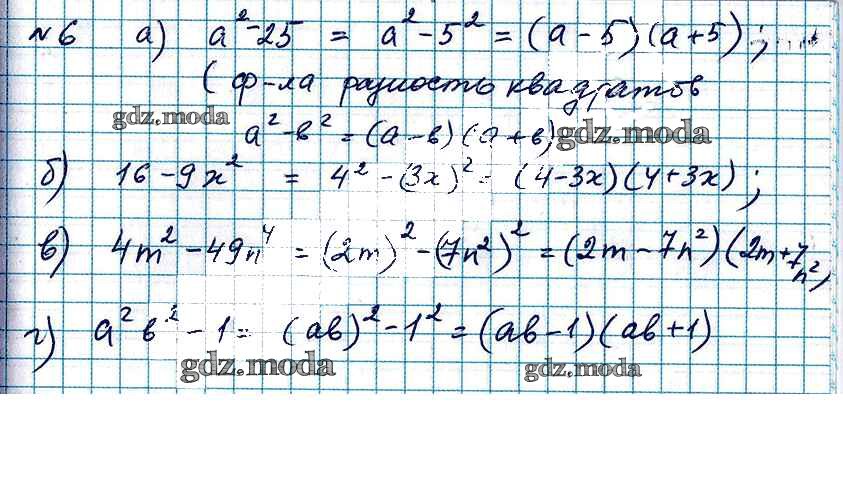 №6 а) a² - 25 = a² - 5² = (a - 5)(a + 5);
(ф-ла разность квадратов
gdz.moda
a² - в² = (a - в)(a + в)
gdz.moda
б) 16 - 9x² = 4² - (3x)² = (4 - 3x)(4 + 3x);
в) 4m² - 49n⁴ = (2m)² - (7n²)² = (2m - 7n²)(2m + 7n²)
г) a²в² - 1 = (ав)² - 1² = (ав - 1)(ав + 1)
gdz.moda
gdz.moda